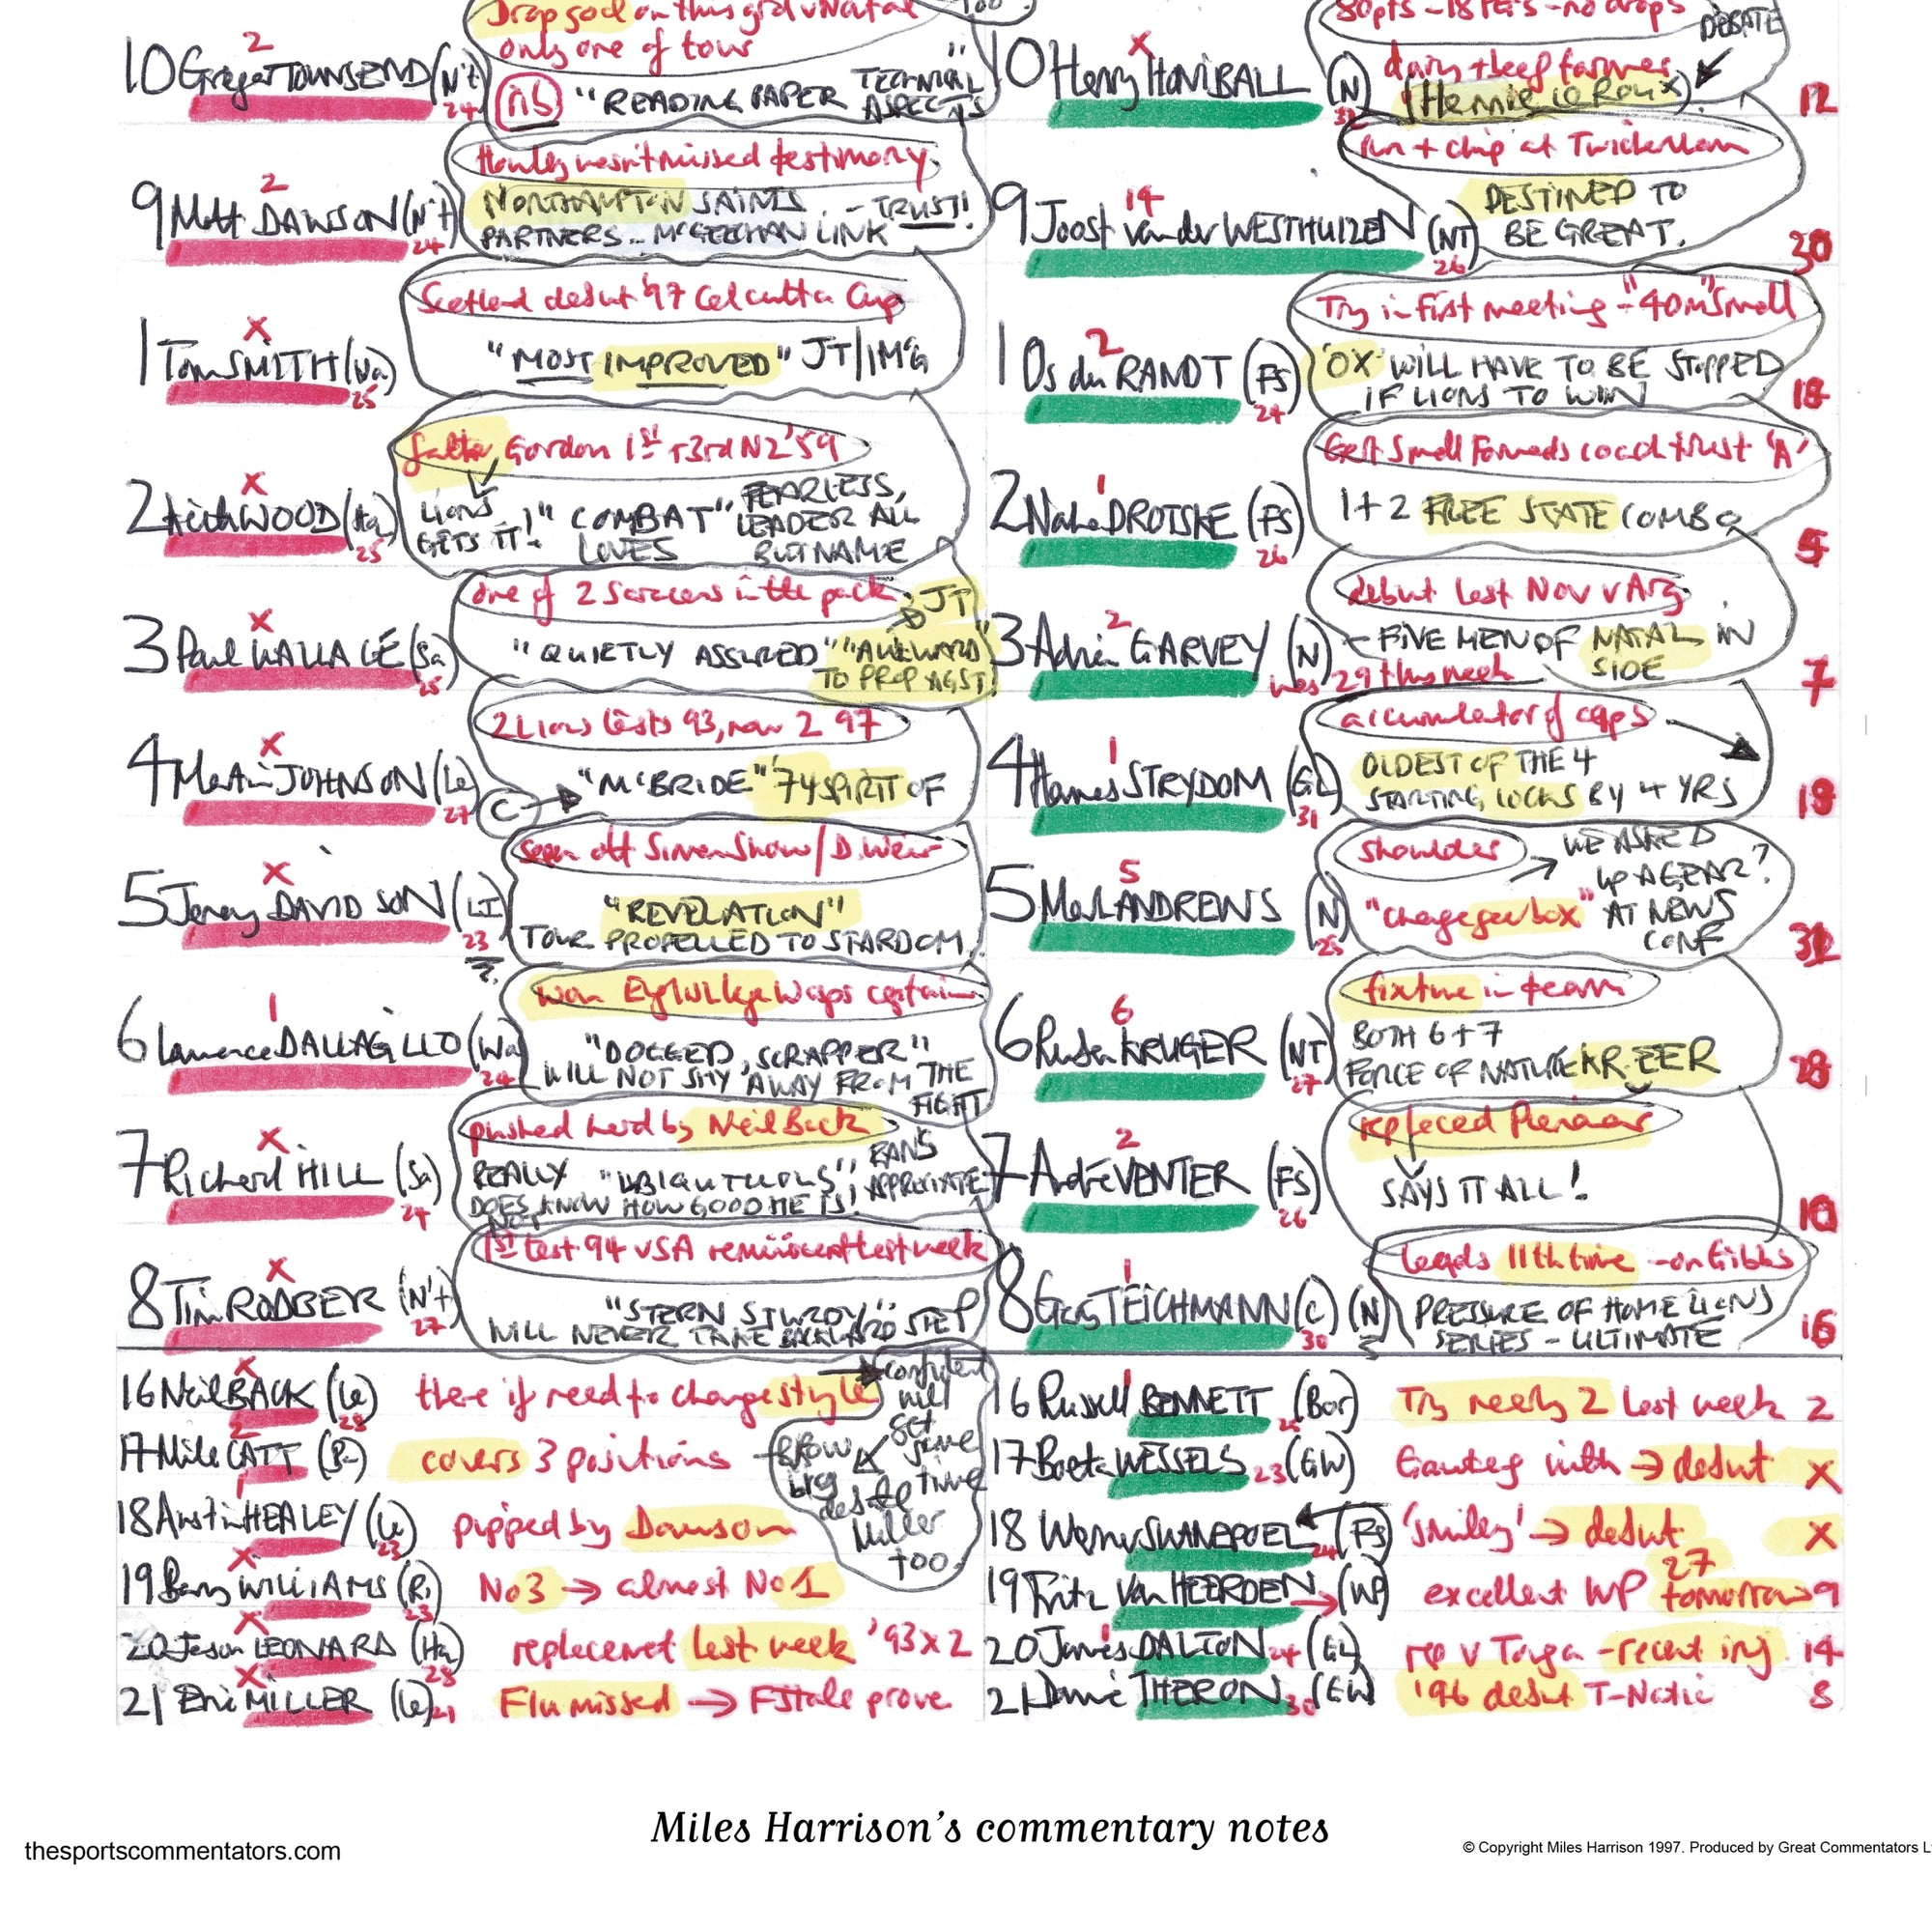 Drop goal on this grd v Natal
too
only one of tour
2
10 Gregor TOWNSEND (N't)
24
nb
"READING PAPER TECHNICAL ASPECTS"
80pts - 18 - no drops
DEBATE
X
10 Henry HONIBALL (N)
dairy + beef farmer
(Hennie le Roux)
12
2
9 Matt DAWSON (N't)
24
Howley hasn't missed testimony
NORTHAMPTON SAINTS - TRUST!
PARTNERS... McGEECHAN LINK
14
9 Joost van der WESTHUIZEN (NT)
26
run + chip at Twickenham
DESTINED TO
BE GREAT.
30
X
1 Tom SMITH (Wa)
25
Scotland debut '97 Calcutta Cup
"MOST IMPROVED" JT/IMcG
2
1 Os du RANDT (FS)
24
Try in first meeting - "40m" Small
'OX' WILL HAVE TO BE STOPPED
IF LIONS TO WIN
18
X
2 Keith WOOD (Ha)
25
father Gordon 1st + 3rd NZ '59
LIONS GETS IT!
"COMBAT" LOVES
FEARLESS,
LEADER ALL
BUT NAME
1
2 Naka DROTSKE (FS)
26
Gert Smal Forwards coach trust 'A'
1 + 2 FREE STATE COMBO
5
X
3 Paul WALLACE (Sa)
25
one of 2 Saracens in the pack
JT
"QUIETLY ASSURED" "AWKWARD
TO PROP AGST"
2
3 Adrian GARVEY (N)
was 29 this week
debut last Nov v Arg
- FIVE MEN OF NATAL IN
SIDE
7
X
4 Martin JOHNSON (Le)
27
C
2 Lions tests 93, now 2 97
"McBRIDE" '74 SPIRIT OF
1
4 Hannes STRYDOM (GL)
31
accumulator of caps
OLDEST OF THE 4
STARTING LOCKS BY 4 YRS
19
X
5 Jeremy DAVIDSON (LI)
23
seen off Simon Shaw / D. Weir
"REVELATION"
TOUR PROPELLED TO STARDOM
5
5 Mark ANDREWS (N)
25
shoulder
"change gearbox"
WE ASKED
UP A GEAR?
AT NEWS
CONF
1
6 Lawrence DALLAGLIO (Wa)
24
won Eng Lge Wasps captain
"DOGGED, SCRAPPER"
WILL NOT SHY AWAY FROM THE
FIGHT
6
6 Ruben KRUGER (NT)
27
fixture in team
BOTH 6 + 7
FORCE OF NATURE KR-EER
28
X
7 Richard HILL (Sa)
24
pushed hard by Neil Back
REALLY "UBIQUITOUS" FANS APPRECIATE
DOES NOT KNOW HOW GOOD HE IS!
2
7 André VENTER (FS)
26
replaced Pienaar
SAYS IT ALL!
10
X
8 Tim RODBER (N't)
27
1st test 94 v SA reminiscent last week
"STERN STURDY"
WILL NEVER TAKE BACKWARD STEP
1
8 Gary TEICHMANN (C) (N)
30
leads 11th time - on Gibbs
PRESSURE OF HOME LIONS
SERIES - ULTIMATE
16
X
16 Neil BACK (Le) 28 there if need to change style
confident will get game time
16 Russell BENNETT (Bor) Try nearly 2 last week 2
2
17 Mike CATT (Ba) covers 3 positions
17 Boeta WESSELS 23 (GW) Gauteng with → debut X
1
18 Austin HEALEY (Le) 23 pipped by Dawson
killer too
18 Werner SWANEPOEL 24 (FS) 'smiley' → debut X
X
19 Barry WILLIAMS (Ri) 23 No 3 → almost No 1
19 Fritz Van HEERDEN → (WP) excellent WP 27 tomorrow 9
X
20 Jason LEONARD (Ha) 28 replacement last week '93 x 2
20 James DALTON 24 (GL) rep v Tonga - recent inj 14
X
21 Eric MILLER (Le) 21 Flu missed → F State prove
21 Dawie THERON 30 (GW) '96 debut 8
Miles Harrison's commentary notes
thesportscommentators.com
© Copyright Miles Harrison 1997. Produced by Great Commentators L